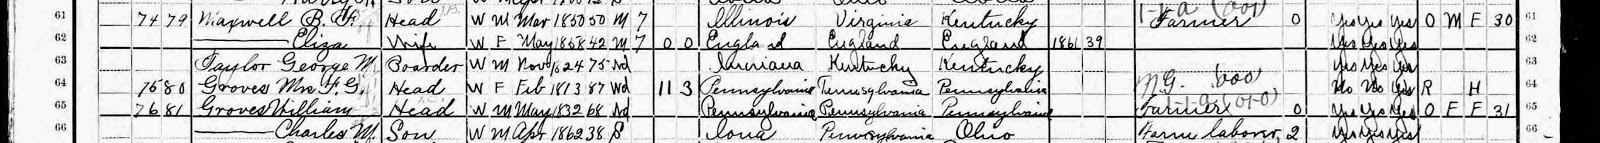 61 74 79 Maxwell B. F. Head W M Mar 1850 50 M 7 Illinois Virginia Kentucky Farmer 0 Yes Yes Yes O M F 30 61
62 Eliza Wife W F May 1858 42 M 7 0 0 England England England 1861 39 Yes Yes Yes 62
63 Taylor George M. Boarder W M Nov 1824 75 Wd Indiana Kentucky Kentucky Yes Yes Yes 63
64 75 80 Groves Mrs F. G. Head W F Feb 1813 87 Wd 11 3 Pennsylvania Pennsylvania Pennsylvania No No Yes R H 64
65 76 81 Groves William Head W M May 1832 68 Wd Pennsylvania Pennsylvania Pennsylvania Farmer 0 Yes Yes Yes O F F 31 65
66 Charles M. Son W M Apr 1862 38 S Iowa Pennsylvania Ohio Farm laborer 2 Yes Yes Yes 66